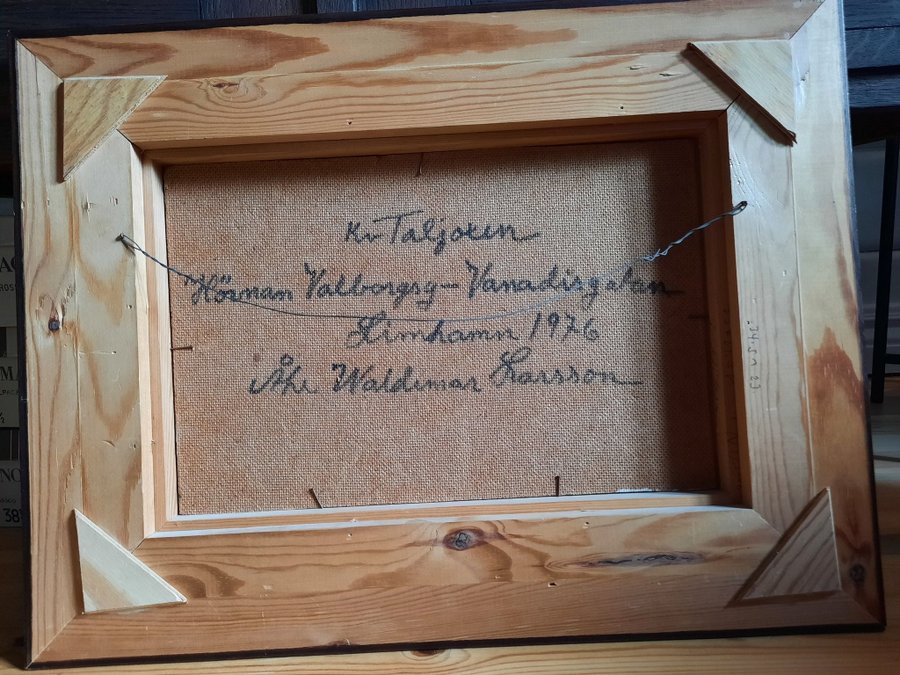 Kv Taljoken
Hörnan Valborgsg- Vanadisgatan
Limhamn 1976
Åke Waldemar Larsson